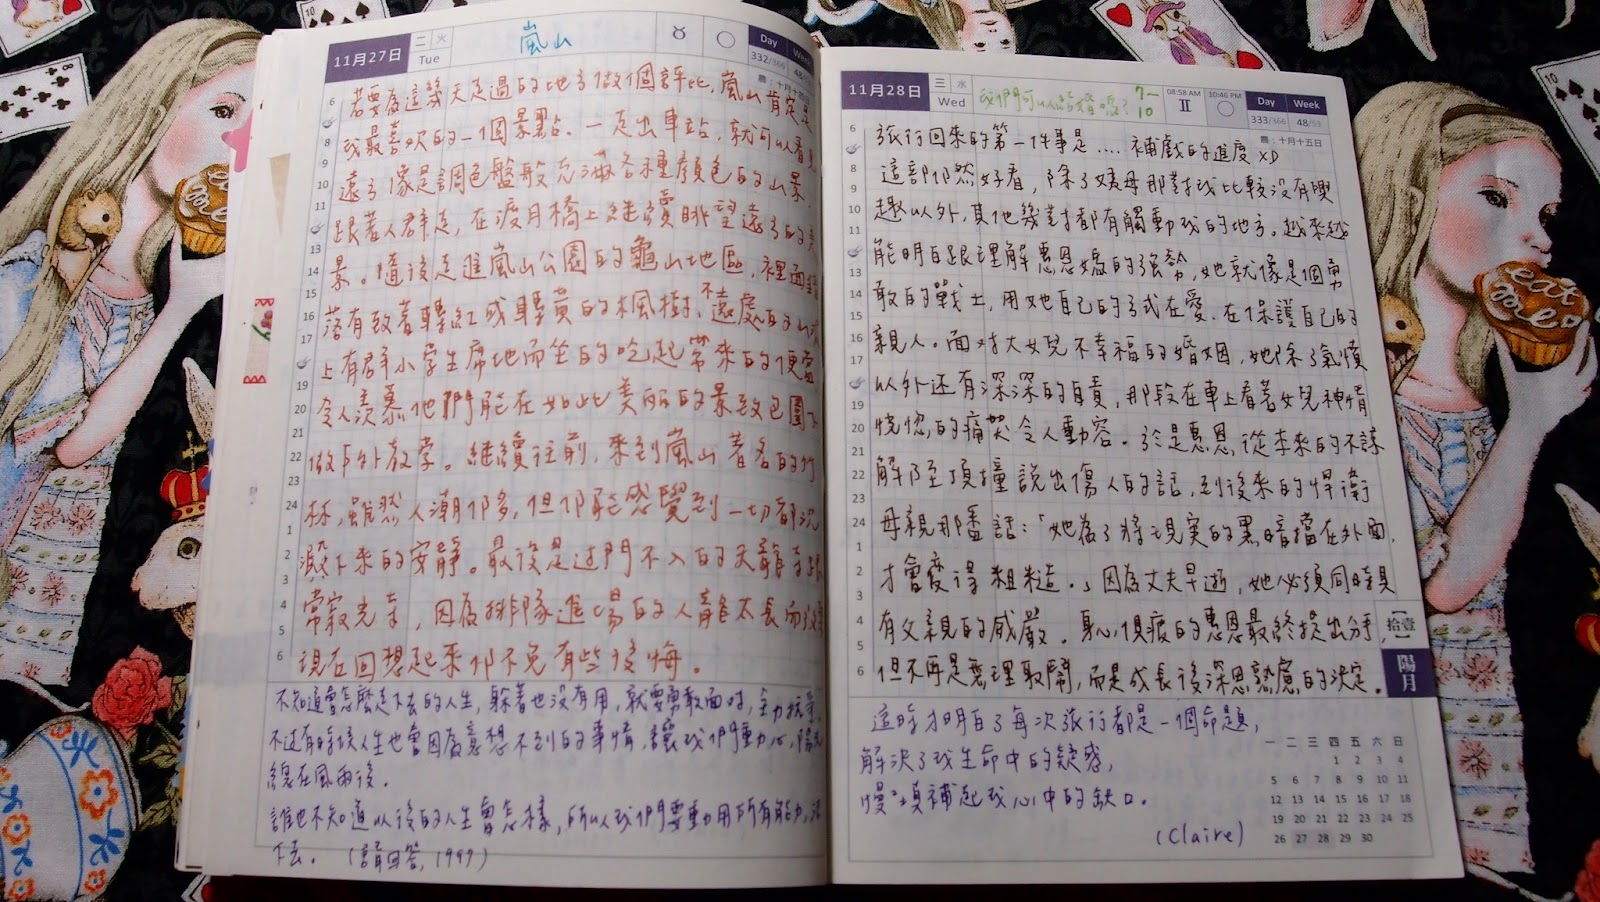 11月27日 二 火 Tue
嵐山
♉ ○
Day 332/366
48/
農:十月十四日
若要為這幾天走過的地方做個評比,嵐山肯定是
我最喜歡的一個景點。一走出車站,就可以看見
遠方像是調色盤般充滿各種顏色的山景。
跟著人群走,在渡月橋上繼續眺望遠方的美
景。隨後走進嵐山公園的龜山地區,裡面錯
落有致著轉紅或轉黃的楓樹,不遠處的
上有群小学生席地而坐的吃起帶來的便當
令人羨慕他們能在如此美麗的景致包圍下
做戶外教学。繼續往前,來到嵐山著名的竹
林,雖然人潮仍多,但仍能感覺到一切都沉
澱下來的安靜。最後是过門不入的天龍寺跟
常寂光寺,因為排隊進場的人龍太長而
現在回想起來仍不免有些後悔。
不知道會怎麼走下去的人生,躲著也沒有用,就要勇敢面对,全力
不过有時候人生也會因為意想不到的事情,讓我們動心,陽光
總在風雨後。
誰也不知道以後的人生會怎樣,所以我們要動用所有能力,活
下去。(請回答,1997)
11月28日 三 水 Wed
我們可以結婚嗎? 7~10
08:58 AM Ⅱ
10:46 PM ○
Day 333/366
Week 48/53
農:十月十五日
旅行回來的第一件事是....補戲的進度 XD
這部仍然好看,除了姨母那對我比較沒有興
趣以外,其他幾对都有觸動我的地方。越來越
能明白跟理解惠恩媽的強勢,她就像是個勇
敢的戰士,用她自己的方式在愛、在保護自己的
親人。面对大女兒不幸福的婚姻,她除了氣憤
以外还有深深的自責,那段在車上看著女兒神情
恍惚,的痛哭令人動容。於是惠恩,從本來的不諒
解乃至頂撞說出傷人的話,到後來的悍衛
母親那番話:「她為了將現実的黑暗擋在外面,
才會變得粗糙。」因為丈夫早逝,她必須同時具
有父親的威嚴。身心俱疲的惠恩最終提出分手,
但不再是無理取鬧,而是成長後深思熟慮的決定。
【拾壹】
陽月
這時才明白了每次旅行都是一個命題,
解決了我生命中的疑惑,
慢慢填補起我心中的缺口。
(Claire)
一 二 三 四 五 六 日
1 2 3 4
5 6 7 8 9 10 11
12 13 14 15 16 17 18
19 20 21 22 23 24 25
26 27 28 29 30